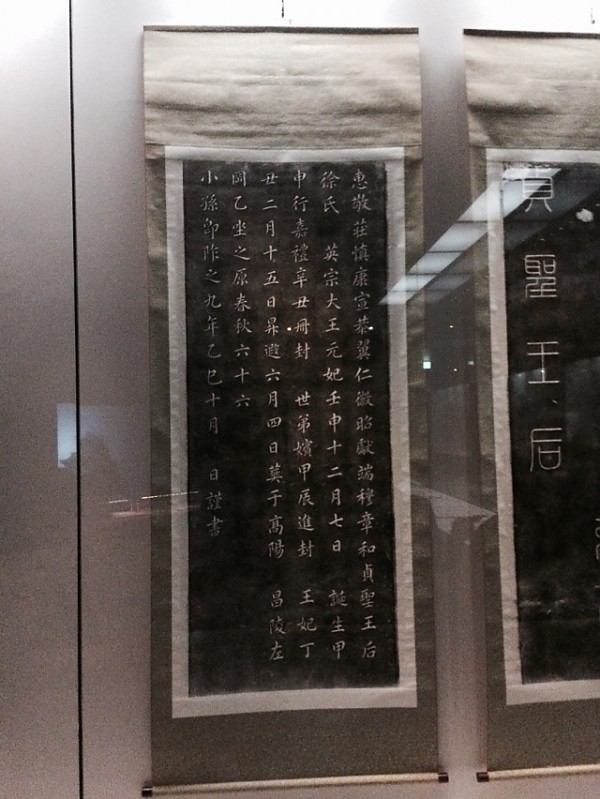 貞聖王后
惠敬莊慎康宣恭翼仁徽昭獻端穆章和貞聖王后
徐氏 英宗大王元妃壬申十二月七日 誕生甲
申行嘉禮辛丑冊封 世弟嬪甲辰進封 王妃丁
丑二月十五日昇遐六月四日葬于高陽 昌陵左
岡乙坐之原春秋六十六
小孫卽阼之九年乙巳十月 日謹書